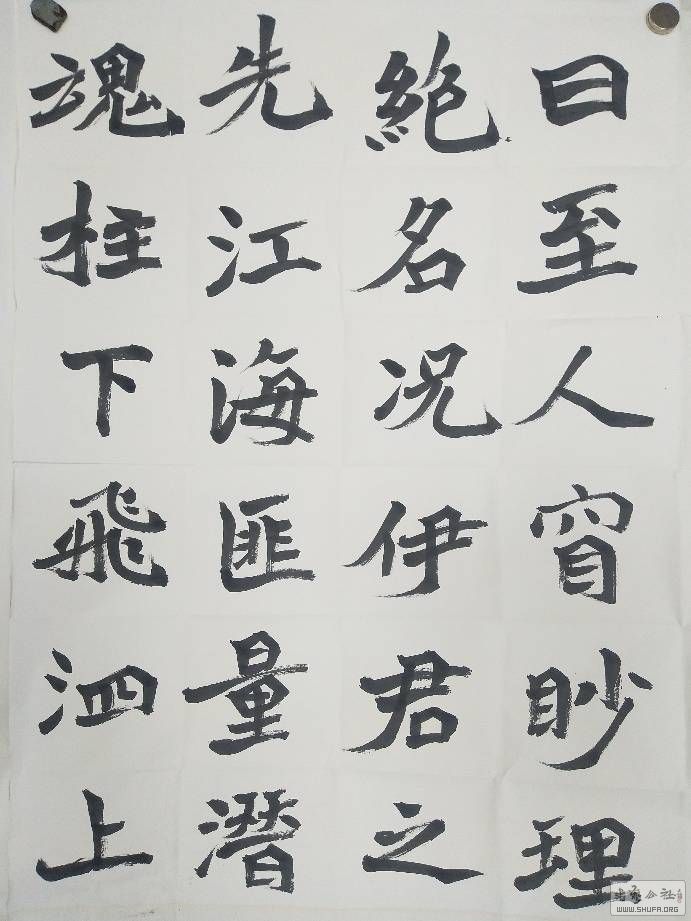 曰至人窅眇理
絶名况伊君之
先江海匪量潛
魂柱下飛泗上
WWW.SHUFA.ORG